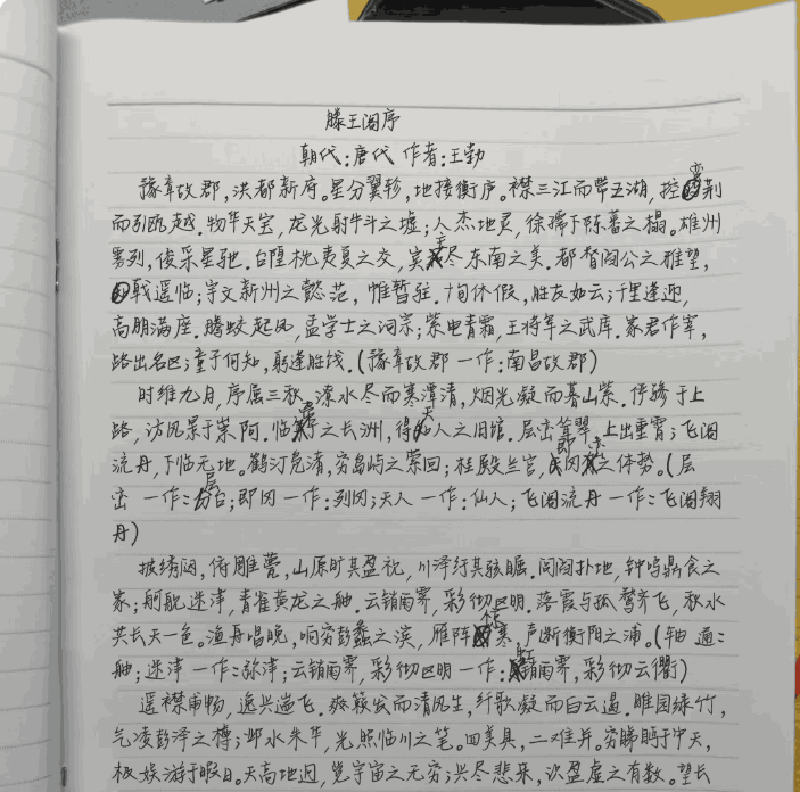 滕王阁序
朝代:唐代 作者:王勃
豫章故郡,洪都新府。星分翼轸,地接衡庐。襟三江而带五湖,控蛮荆
而引瓯越.物华天宝,龙光射牛斗之墟;人杰地灵,徐孺下陈蕃之榻。雄州
雾列,俊采星驰.台隍枕夷夏之交,宾主尽东南之美.都督阎公之雅望,
戟遥临;宇文新州之懿范,惟暂驻.旬休假,胜友如云;千里逢迎,
高朋满座.腾蛟起凤,孟学士之词宗;紫电青霜,王将军之武库.家君作宰,
路出名区;童子何知,躬逢胜饯.(豫章故郡 一作:南昌故郡)
时维九月,序属三秋.潦水尽而寒潭清,烟光凝而暮山紫.俨骖于上
路,访风景于崇阿.临帝子之长洲,得天人之旧馆.层峦耸翠,上出重霄;飞阁
流丹,下临无地.鹤汀凫渚,穷岛屿之萦回;桂殿兰宫,即冈峦之体势.(层
峦 一作:层台;即冈 一作:列冈;天人 一作:仙人;飞阁流丹 一作:飞阁翔
丹)
披绣闼,俯雕甍,山原旷其盈视,川泽纡其骇瞩.闾阎扑地,钟鸣鼎食之
家;舸舰迷津,青雀黄龙之舳.云销雨霁,彩彻区明.落霞与孤鹜齐飞,秋水
共长天一色.渔舟唱晚,响穷彭蠡之滨,雁阵惊寒,声断衡阳之浦.(轴 通:
舳;迷津 一作:弥津;云销雨霁,彩彻区明 一作:虹销雨霁,彩彻云衢)
遥襟甫畅,逸兴遄飞.爽籁发而清风生,纤歌凝而白云遏.睢园绿竹,
气凌彭泽之樽;邺水朱华,光照临川之笔.四美具,二难并.穷睇眄于中天,
极娱游于暇日.天高地迥,觉宇宙之无穷;兴尽悲来,识盈虚之有数.望长